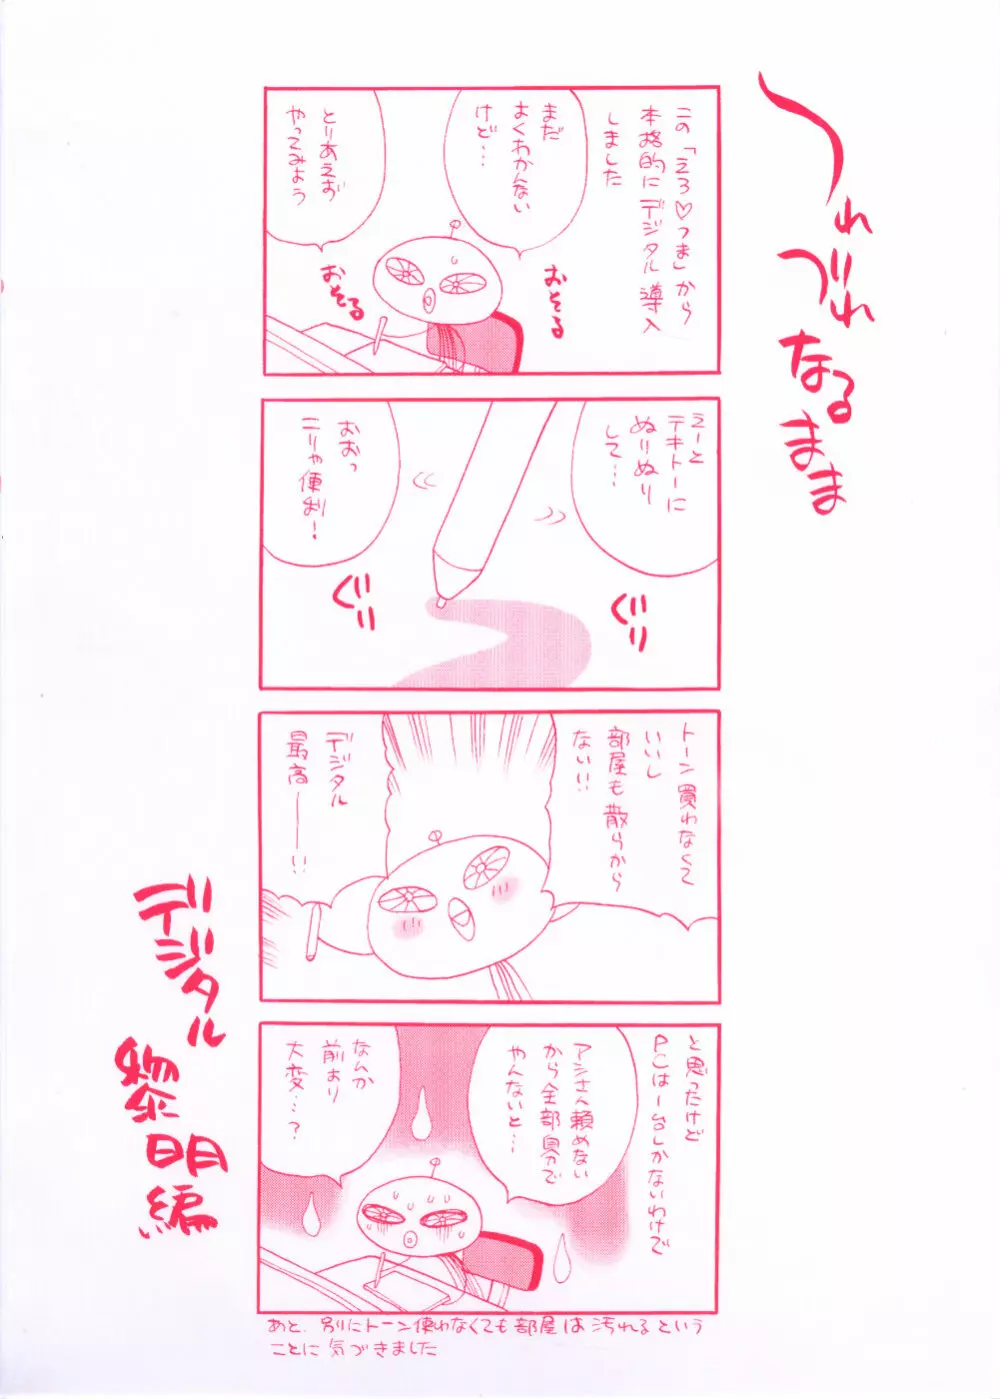 つれづれ
なるまま
この「えろ♡つま」から
本格的にデジタル導入
しました
まだ
よくわかんない
けど…
とりあえず
やってみよう
おそる
おそる
えーと
テキトーに
ぬりぬり
して…
おおっ
こりゃ便利!
ぐりり
ぐりり
トーン買わなくて
いいし
部屋も散らから
ない!!
デジタル
最高——い
と思ったけど
PCは一台しかないわけで
アシさん頼めない
から全部自分で
やんないと…
なんか
前より
大変…?
あと、別にトーン使わなくても部屋は汚れるという
ことに気づきました
デジタル
黎明編